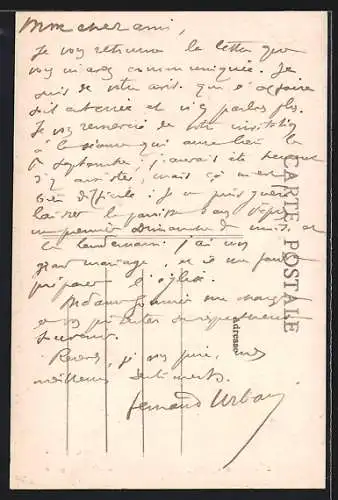 Mon cher ami,
Je vous retourne la lettre que
vous m'avez communiquée. Je
suis de votre avis. que l'affaire
soit enterrée et n'en parlons plus.
Je vous remercie de votre invitation
à la séance qui aura lieu le
septembre: j'aurais été heureux
d'y assister, mais ça m'est
bien difficile: Je ne puis guère
laisser la paroisse sans
un premier Dimanche du mois. et
le lendemain j'ai un
grand mariage, et il me faut
préparer l'église.
Madame
respectueux
souvenir.
Recevez, je vous prie, mes
meilleurs sentiments.
Fernand Urbain
CARTE POSTALE
Adresse